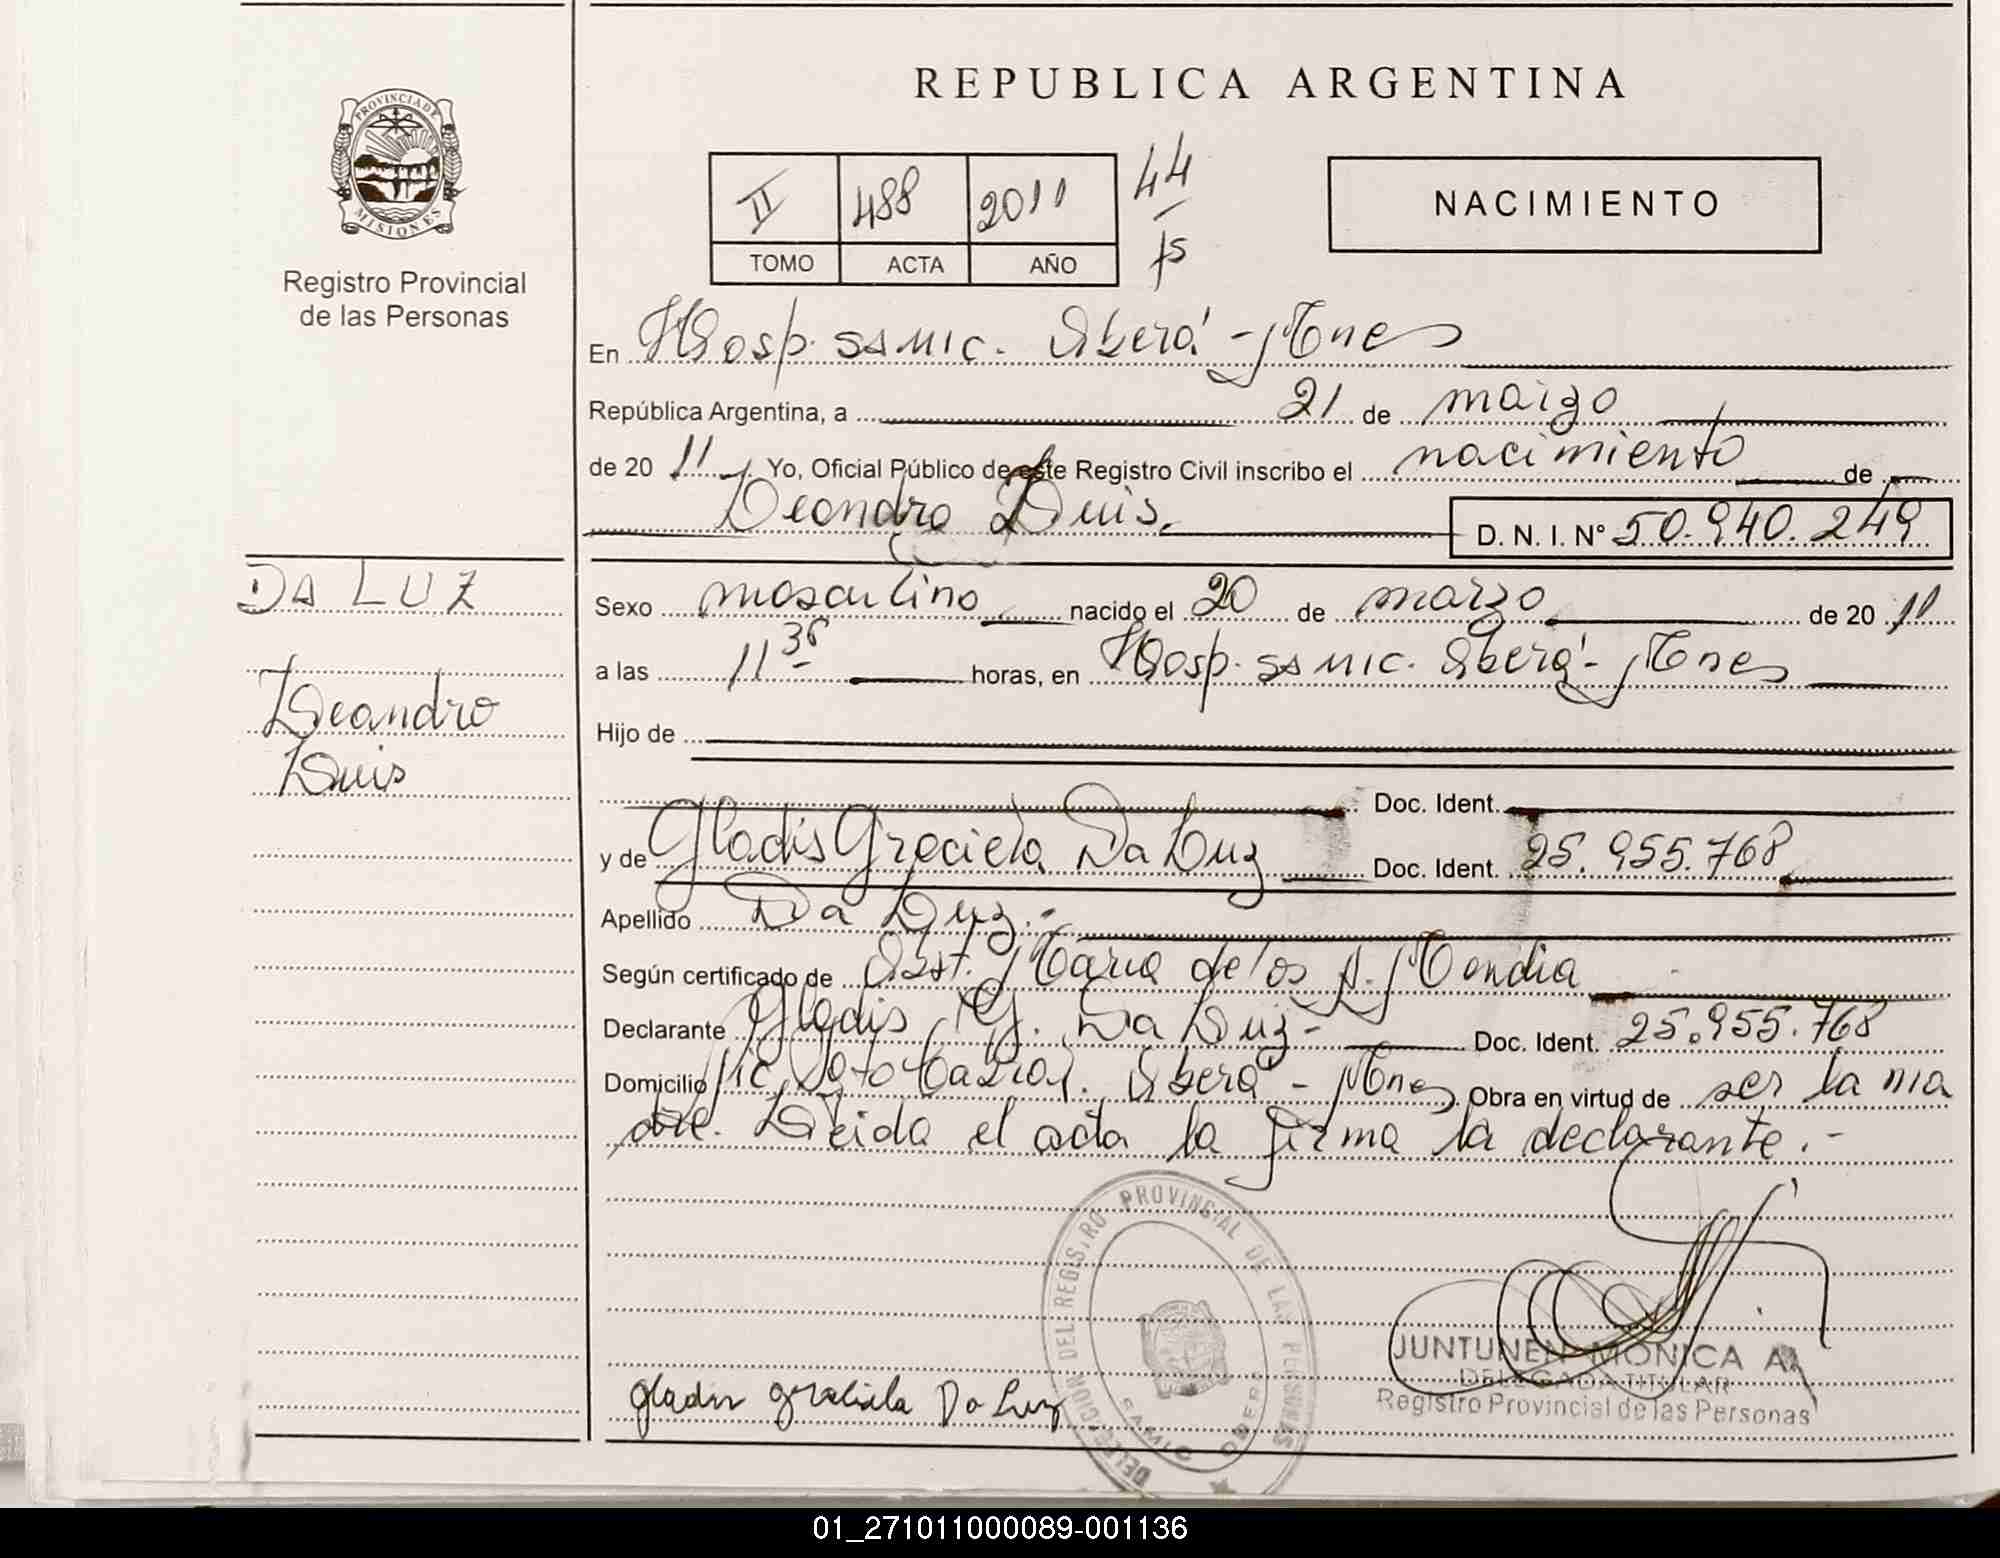 REPUBLICA ARGENTINA
PROVINCIA DE
MISIONES
Registro Provincial
de las Personas
II 488 2011
TOMO ACTA AÑO
44
NACIMIENTO
En Hosp. SAMIC. Oberá - Mnes
República Argentina, a 21 de marzo
de 20 11. Yo, Oficial Público de este Registro Civil inscribo el nacimiento de
Leandro Luis. D. N. I. Nº 50.940.249
DA LUZ
Leandro
Luis
Sexo masculino nacido el 20 de marzo de 20 11
a las 11 horas, en Hosp. SAMIC. Oberá - Mnes
Hijo de
Doc. Ident.
y de Gladis Graciela Da Luz Doc. Ident. 25.955.768
Apellido Da Luz.-
Según certificado de Obst. Maria de los A. Mendia
Declarante Gladis G. Da Luz- Doc. Ident. 25.955.768
Domicilio Oberá - Mnes Obra en virtud de ser la ma
dre. Leida el acta la firma la declarante.-
DELEGACION DEL REGISTRO PROVINCIAL DE LAS PERSONAS
SAMIC OBERA
JUNTUNEN MONICA A.
DELEGADA TITULAR
Registro Provincial de las Personas
Gladis Graciela Da Luz
01_271011000089-001136